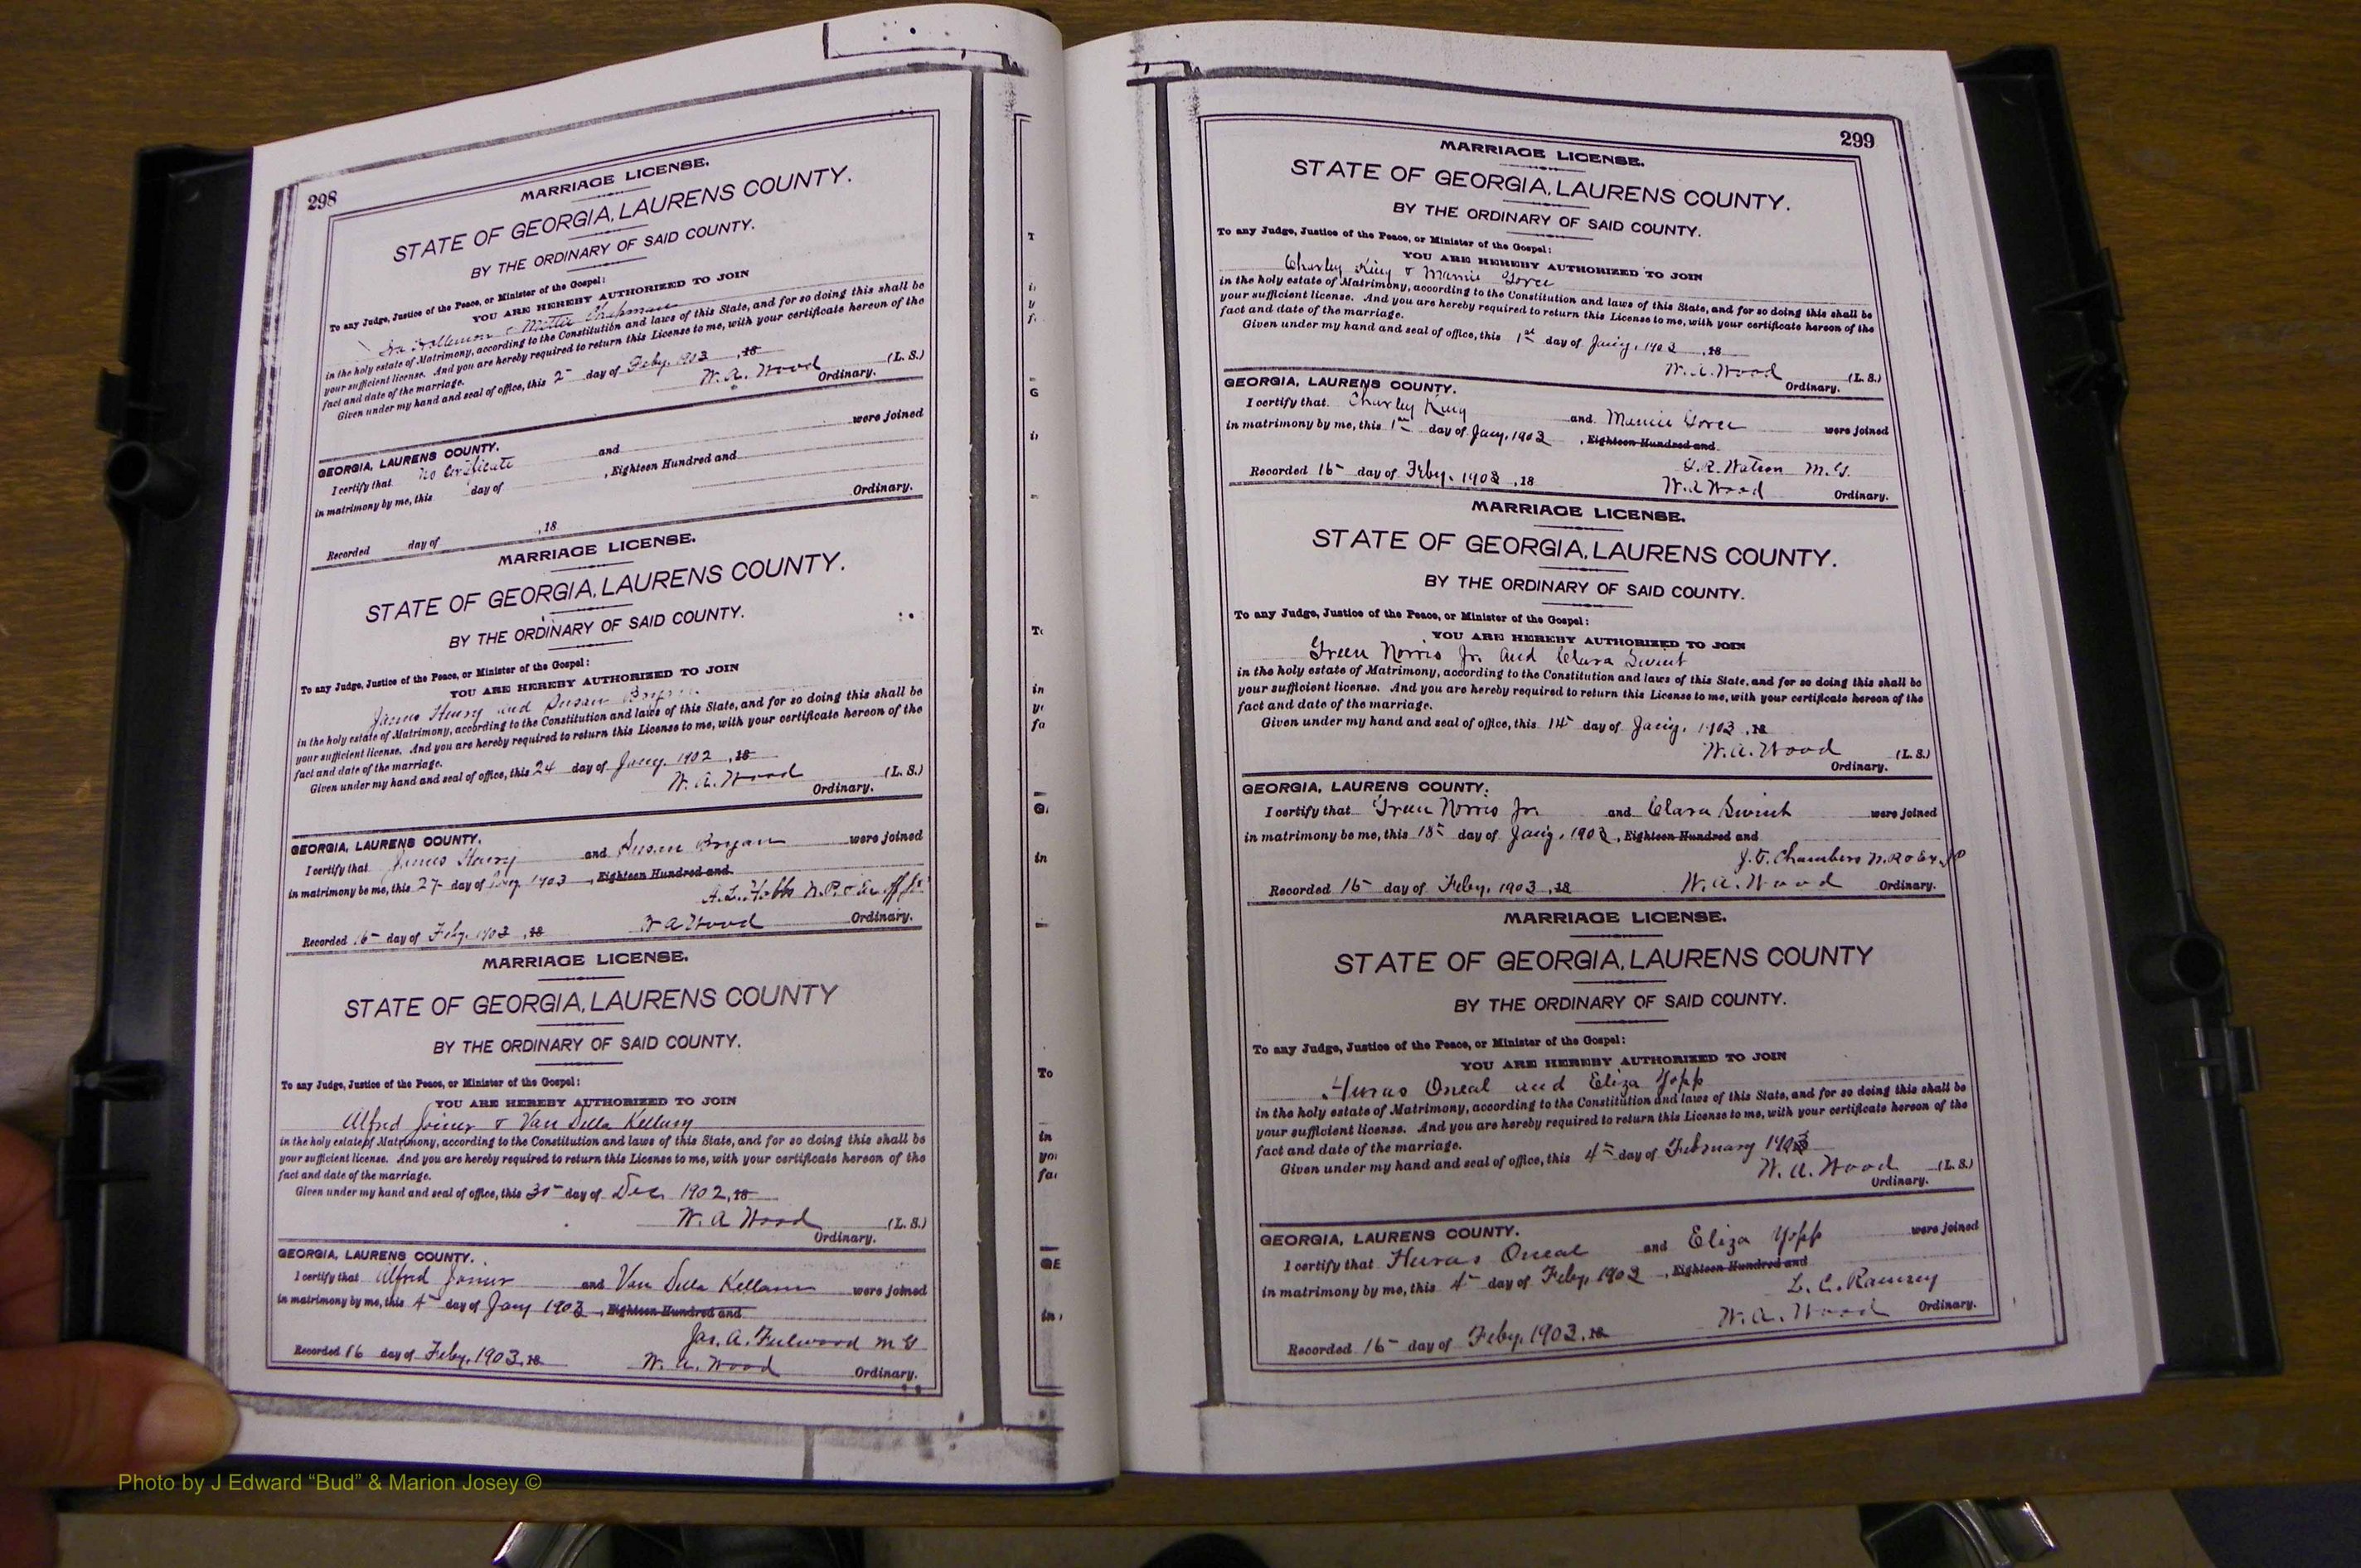 298
MARRIAGE LICENSE.
STATE OF GEORGIA, LAURENS COUNTY.
BY THE ORDINARY OF SAID COUNTY.
To any Judge, Justice of the Peace, or Minister of the Gospel:
YOU ARE HEREBY AUTHORIZED TO JOIN
Ira & Mettie Chapman
in the holy estate of Matrimony, according to the Constitution and laws of this State, and for so doing this shall be
your sufficient license. And you are hereby required to return this License to me, with your certificate hereon of the
fact and date of the marriage.
Given under my hand and seal of office, this 2 day of Feby. 1903, 18
W. A. Wood (L. S.)
Ordinary.
GEORGIA, LAURENS COUNTY.
I certify that No Certificate and were joined
in matrimony by me, this day of , Eighteen Hundred and
Ordinary.
Recorded day of , 18
MARRIAGE LICENSE.
STATE OF GEORGIA, LAURENS COUNTY.
BY THE ORDINARY OF SAID COUNTY.
To any Judge, Justice of the Peace, or Minister of the Gospel:
YOU ARE HEREBY AUTHORIZED TO JOIN
James Henry and Susan Bryan
in the holy estate of Matrimony, according to the Constitution and laws of this State, and for so doing this shall be
your sufficient license. And you are hereby required to return this License to me, with your certificate hereon of the
fact and date of the marriage.
Given under my hand and seal of office, this 24 day of Jany. 1902, 18
W. A. Wood (L. S.)
Ordinary.
GEORGIA, LAURENS COUNTY.
I certify that James Henry and Susan Bryan were joined
in matrimony be me, this 27 day of Jany. 1903, Eighteen Hundred and
A. L. Hobbs N. P.
Recorded 16 day of Feby. 1903, 18 W A Wood Ordinary.
MARRIAGE LICENSE.
STATE OF GEORGIA, LAURENS COUNTY
BY THE ORDINARY OF SAID COUNTY.
To any Judge, Justice of the Peace, or Minister of the Gospel:
YOU ARE HEREBY AUTHORIZED TO JOIN
Alfred Joiner & Van Della Kellam
in the holy estate of Matrimony, according to the Constitution and laws of this State, and for so doing this shall be
your sufficient license. And you are hereby required to return this License to me, with your certificate hereon of the
fact and date of the marriage.
Given under my hand and seal of office, this 30 day of Dec. 1902, 18
W. A Wood (L. S.)
Ordinary.
GEORGIA, LAURENS COUNTY.
I certify that Alfred Joiner and Van Della Kellam were joined
in matrimony by me, this 4 day of Jany 1903, Eighteen Hundred and
Jas. A. Fulwood M G
Recorded 16 day of Feby, 1903, 18 W. A. Wood Ordinary.
299
MARRIAGE LICENSE.
STATE OF GEORGIA, LAURENS COUNTY.
BY THE ORDINARY OF SAID COUNTY.
To any Judge, Justice of the Peace, or Minister of the Gospel:
YOU ARE HEREBY AUTHORIZED TO JOIN
Charley King & Mamie
in the holy estate of Matrimony, according to the Constitution and laws of this State, and for so doing this shall be
your sufficient license. And you are hereby required to return this License to me, with your certificate hereon of the
fact and date of the marriage.
Given under my hand and seal of office, this 1st day of Jany. 1903, 18
W. A. Wood (L. S.)
Ordinary.
GEORGIA, LAURENS COUNTY.
I certify that Charley King and Mamie were joined
in matrimony by me, this 1st day of Jany, 1903, Eighteen Hundred and
Watson M. G.
Recorded 16 day of Feby. 1903, 18 W. A Wood Ordinary.
MARRIAGE LICENSE.
STATE OF GEORGIA, LAURENS COUNTY.
BY THE ORDINARY OF SAID COUNTY.
To any Judge, Justice of the Peace, or Minister of the Gospel:
YOU ARE HEREBY AUTHORIZED TO JOIN
Green Norris Jr. and Clara Swint
in the holy estate of Matrimony, according to the Constitution and laws of this State, and for so doing this shall be
your sufficient license. And you are hereby required to return this License to me, with your certificate hereon of the
fact and date of the marriage.
Given under my hand and seal of office, this 14 day of Jany. 1903, 18
W. A. Wood (L. S.)
Ordinary.
GEORGIA, LAURENS COUNTY.
I certify that Green Norris Jr. and Clara Swint were joined
in matrimony be me, this 18 day of Jany, 1903, Eighteen Hundred and
Chambers N. P.
Recorded 16 day of Feby, 1903, 18 W. A. Wood Ordinary.
MARRIAGE LICENSE.
STATE OF GEORGIA, LAURENS COUNTY
BY THE ORDINARY OF SAID COUNTY.
To any Judge, Justice of the Peace, or Minister of the Gospel:
YOU ARE HEREBY AUTHORIZED TO JOIN
Huras Oneal and Eliza Yopp
in the holy estate of Matrimony, according to the Constitution and laws of this State, and for so doing this shall be
your sufficient license. And you are hereby required to return this License to me, with your certificate hereon of the
fact and date of the marriage.
Given under my hand and seal of office, this 4 day of February 1903
W. A. Wood (L. S.)
Ordinary.
GEORGIA, LAURENS COUNTY.
I certify that Huras Oneal and Eliza Yopp were joined
in matrimony by me, this 4 day of Feby, 1903, Eighteen Hundred and
L. C. Ramsey
Recorded 16 day of Feby, 1903, 18 W. A. Wood Ordinary.
Photo by J Edward “Bud” & Marion Josey ©